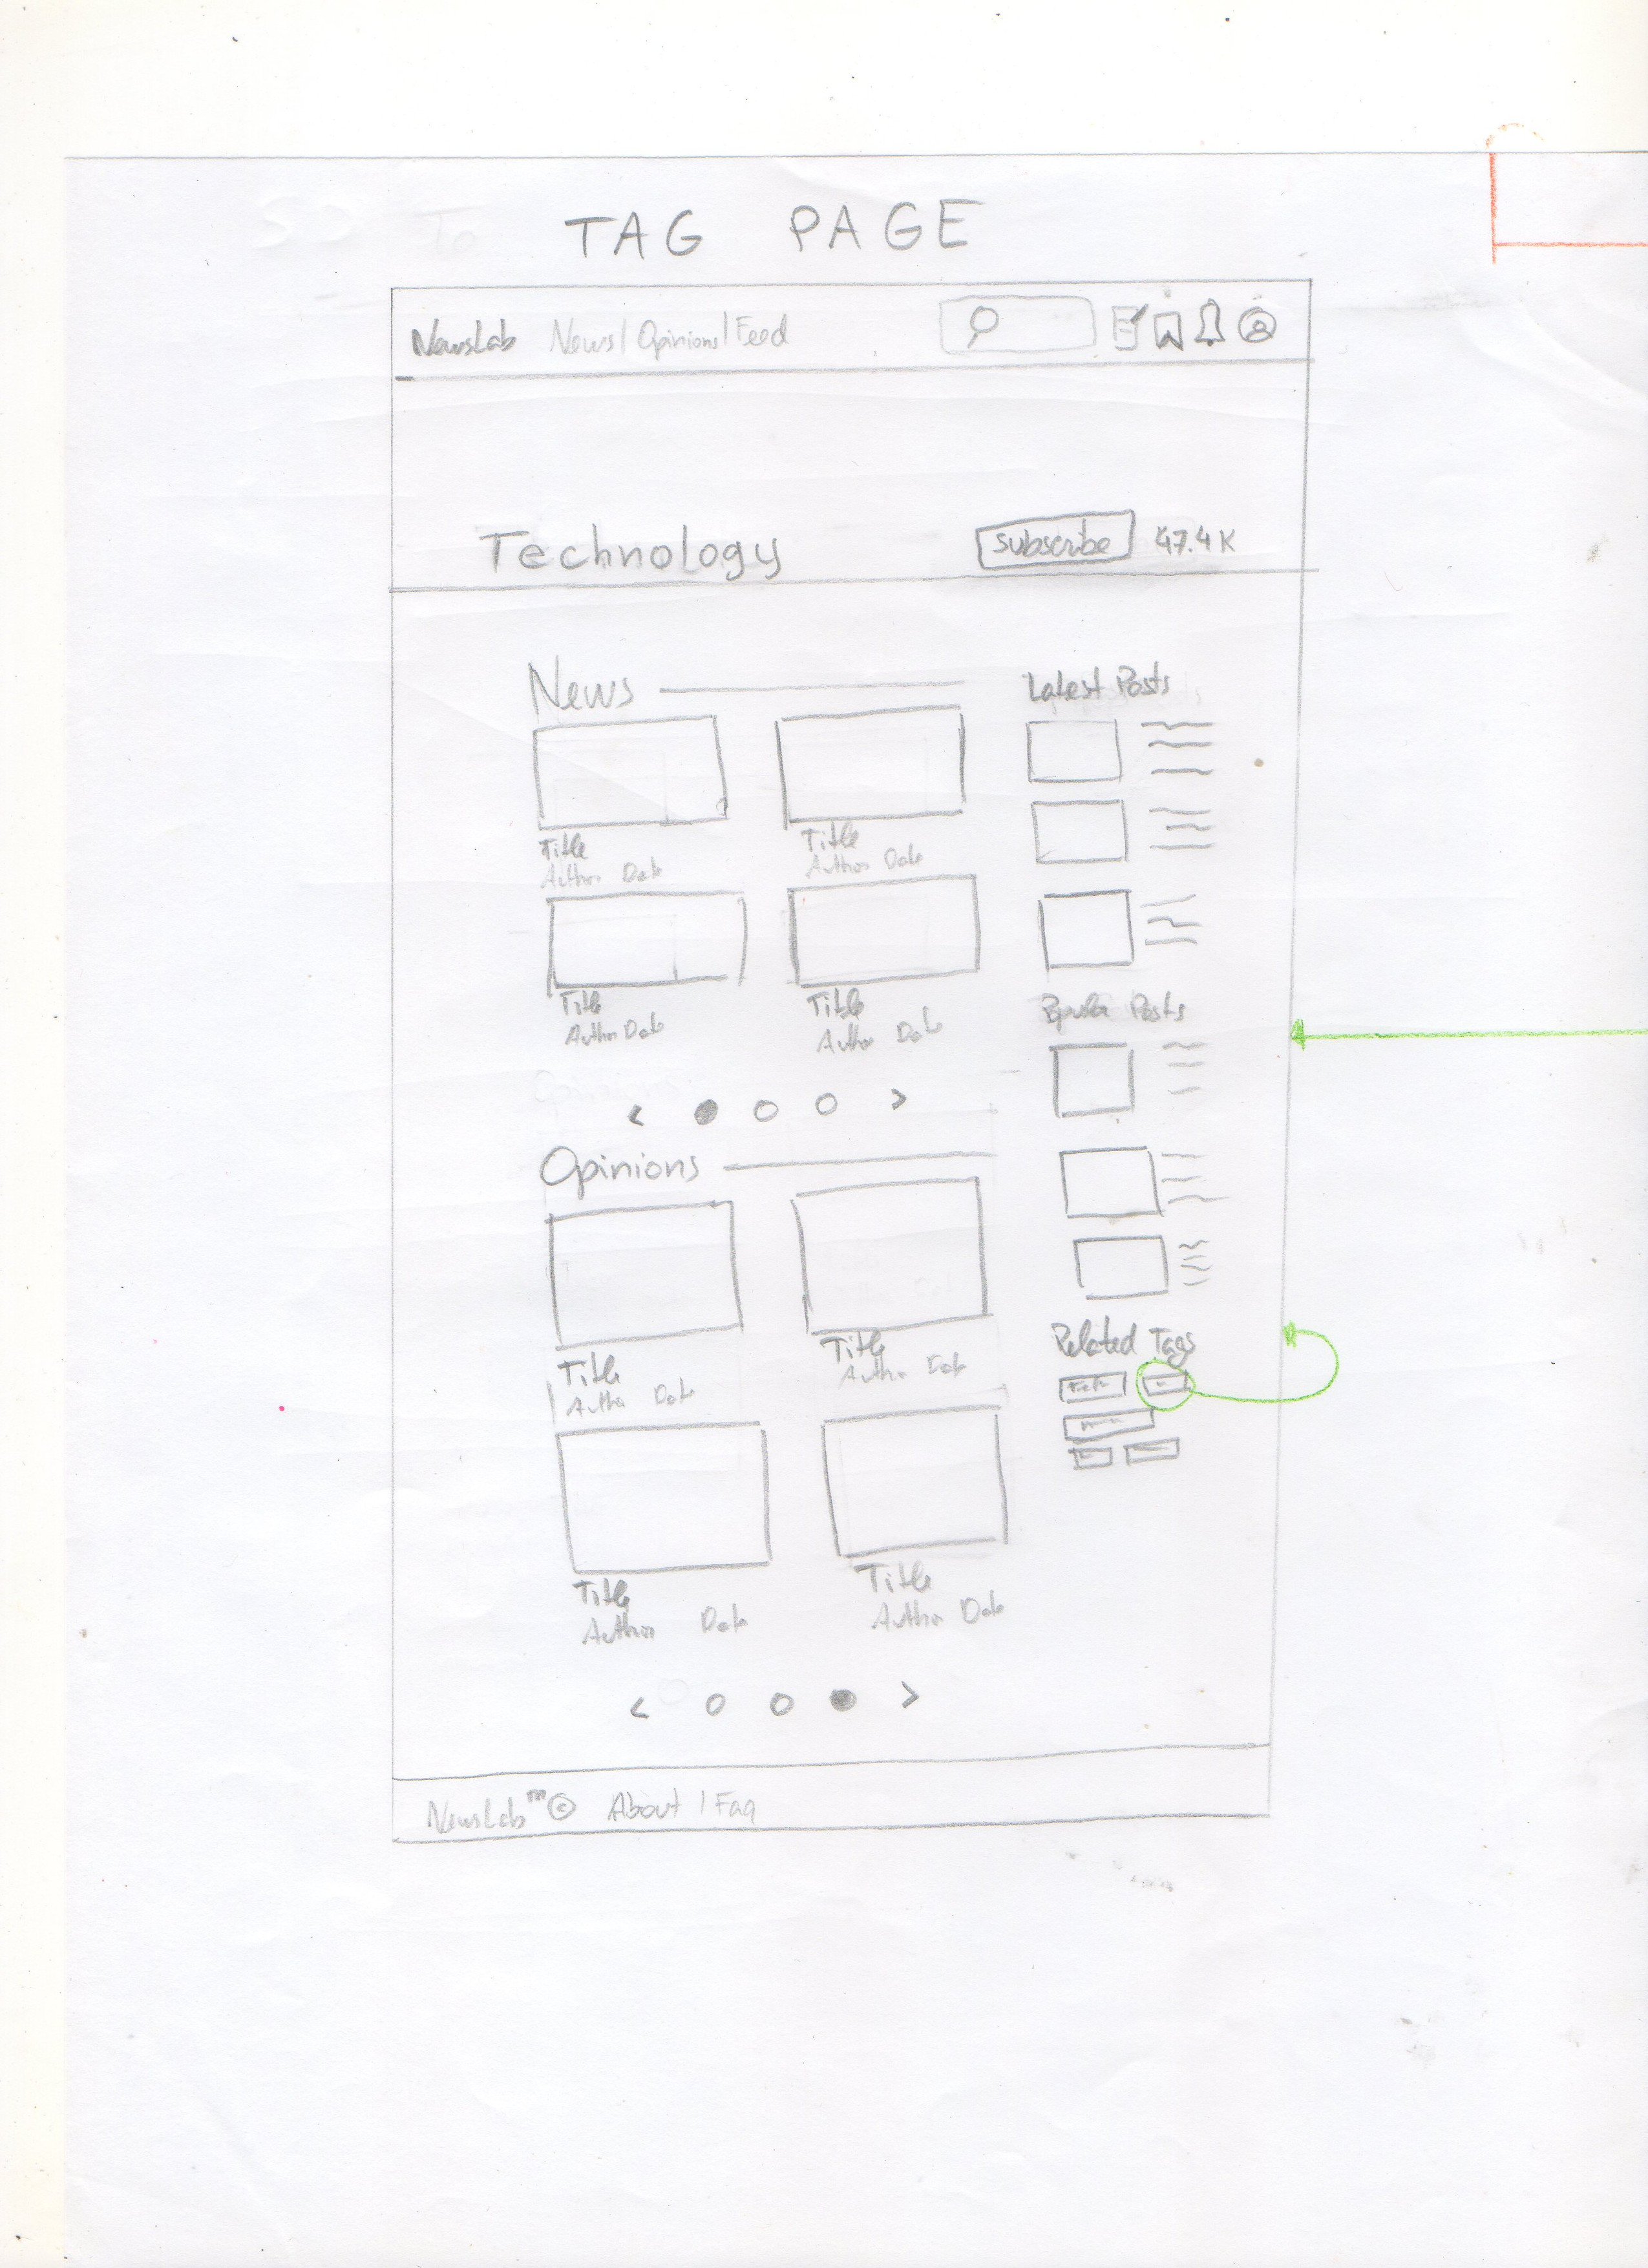 TAG PAGE
NewsLab News | Opinions | Feed
Technology subscribe 47.4K
News
Title
Author Date
Title
Author Date
Title
Author Date
Title
Author Date
< >
Opinions
Title
Author Date
Title
Author Date
Title
Author Date
Title
Author Date
< >
Latest Posts
Popular Posts
Related Tags
NewsLab™© About | Faq